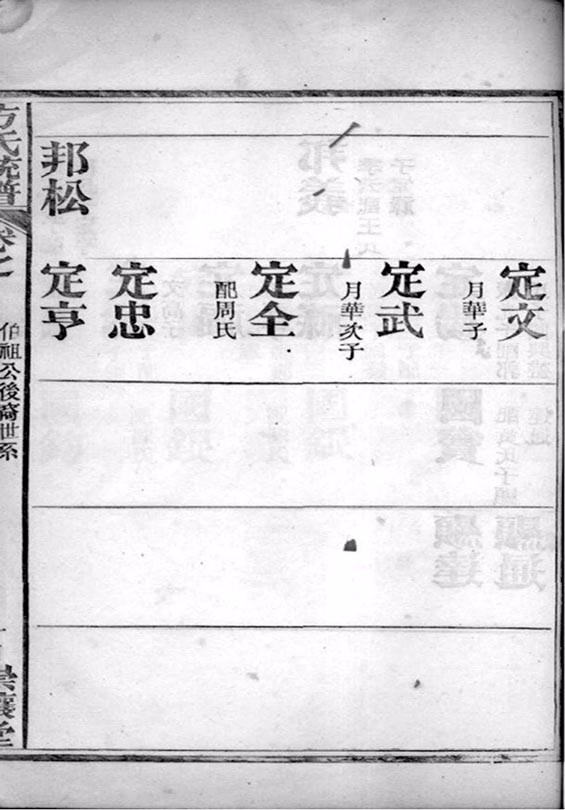 定文
月華子
定武
月華次子
定全
配周氏
定忠
邦松
定亨
方氏統譜
卷七
伯祖公後裔世系